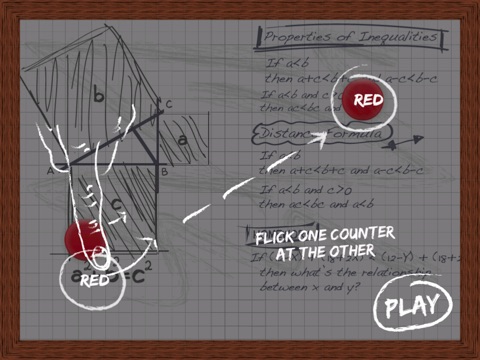 Properties of Inequalities
If a<b
then a+c<b+c and a-c<b-c
If a<b and c>0
then ac<bc and
RED
Distance Formula
If a<b
then a+c<b+c and a-c<b-c
If a<b and c>0
then ac<bc and a<b
b
C
a
A
B
c
FLICK ONE COUNTER
AT THE OTHER
then what's the relationship
between x and y?
RED
PLAY